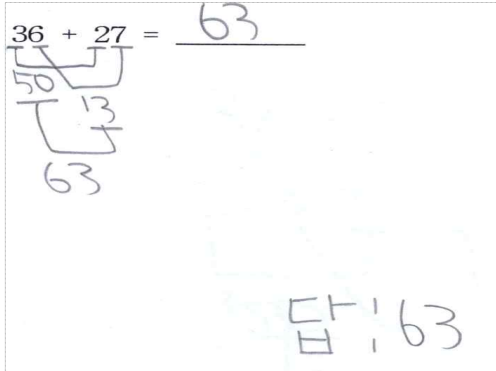 36 + 27 = 63
50
13
63
답:63